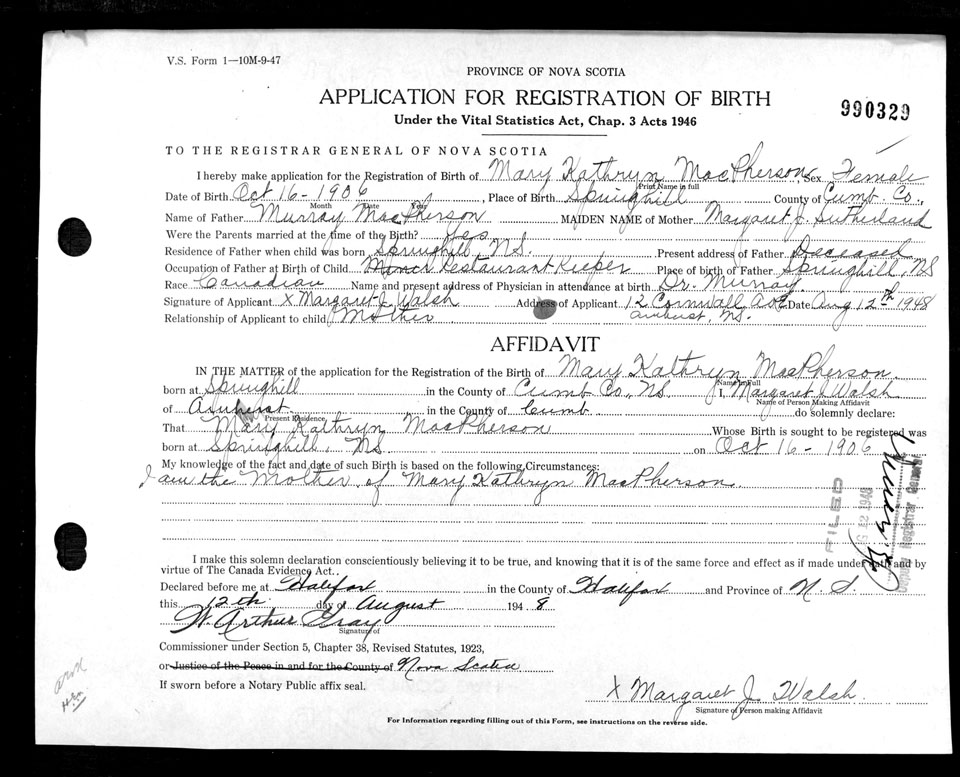 V.S. Form 1—10M-9-47
PROVINCE OF NOVA SCOTIA
APPLICATION FOR REGISTRATION OF BIRTH
990329
Under the Vital Statistics Act, Chap. 3 Acts 1946
TO THE REGISTRAR GENERAL OF NOVA SCOTIA
I hereby make application for the Registration of Birth of Mary Kathryn MacPherson, Sex Female
Print Name in full
Date of Birth Oct 16 - 1906, Place of Birth Springhill County of Cumb. Co.,
Month Date Year
Name of Father Murray MacPherson MAIDEN NAME of Mother Margaret J. Sutherland
Were the Parents married at the time of the Birth? Yes
Residence of Father when child was born Springhill N.S. Present address of Father Deceased
Occupation of Father at Birth of Child Restaurant Keeper Place of birth of Father Springhill, NS
Race Canadian Name and present address of Physician in attendance at birth Dr. Murray.
Signature of Applicant X Margaret J. Walsh Address of Applicant 12 Cornwall Ave Date Aug 12th 1948
Relationship of Applicant to child Mother Amherst, N.S.
AFFIDAVIT
IN THE MATTER of the application for the Registration of Birth of Mary Kathryn MacPherson
Name in Full
born at Springhill in the County of Cumb Co., N.S. I, Margaret J Walsh
Name of Person Making Affidavit
of Amherst in the County of Cumb. do solemnly declare:
Present Residence
That Mary Kathryn MacPherson Whose Birth is sought to be registered was
born at Springhill, NS. on Oct 16 - 1906
My knowledge of the fact and date of such Birth is based on the following Circumstances:
I am the Mother of Mary Kathryn MacPherson.
FILED
Deputy Registrar General
I make this solemn declaration conscientiously believing it to be true, and knowing that it is of the same force and effect as if made under oath and by
virtue of The Canada Evidence Act.
Declared before me at Halifax in the County of Halifax and Province of N. S.
this 12th day of August 194 8
W. Arthur Gray
Signature of
Commissioner under Section 5, Chapter 38, Revised Statutes, 1923,
or Justice of the Peace in and for the County of Nova Scotia
If sworn before a Notary Public affix seal.
X Margaret J. Walsh.
Signature of Person making Affidavit
For Information regarding filling out of this Form, see instructions on the reverse side.